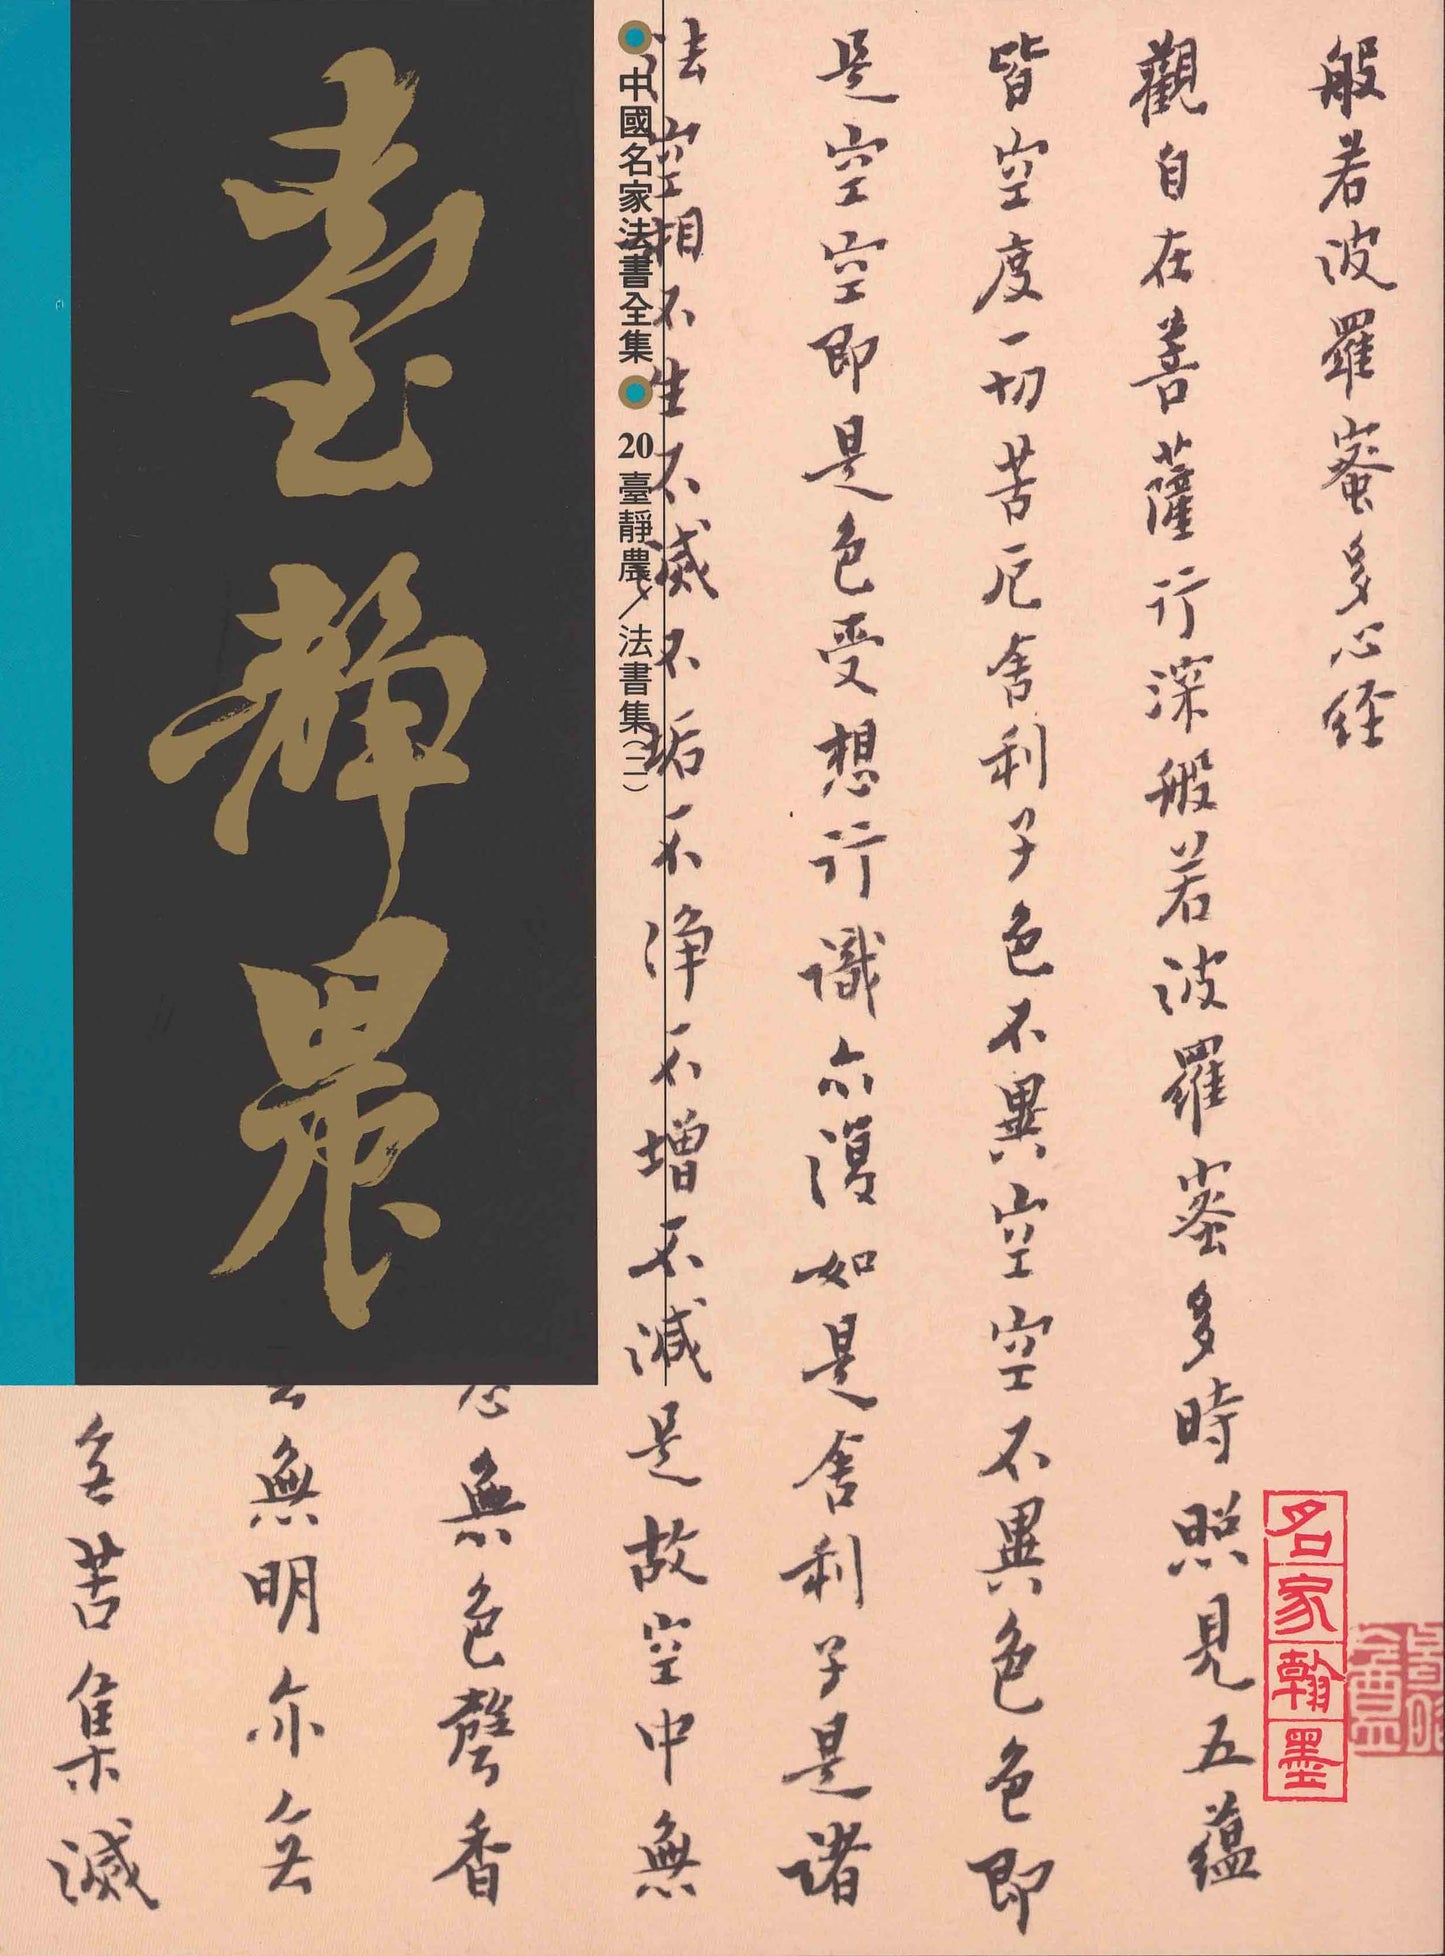 般若波羅蜜多心経
觀自在菩薩行深般若波羅蜜多時照見五蘊
皆空度一切苦厄舍利子色不異空空不異色色即
是空空即是色受想行識亦復如是舍利子是諸
法空相不生不滅不垢不淨不增不減是故空中無
無色聲香
無明亦无
无苦集滅
中國名家法書全集
20 臺靜農/法書集(二)
臺靜農
名家翰墨